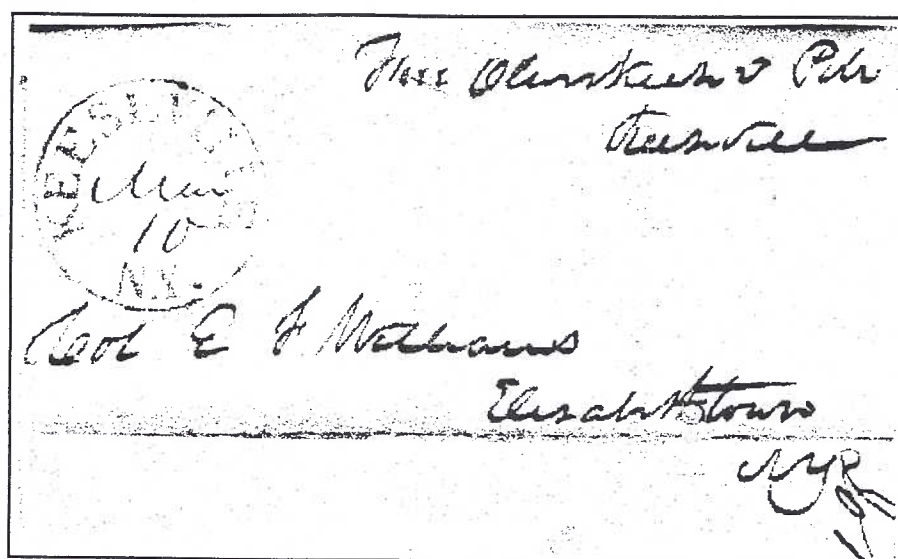 Free
Keeseville
KEESEVILLE
Mar
10
N.Y.
Col E F Williams
Elizabethtown
NY